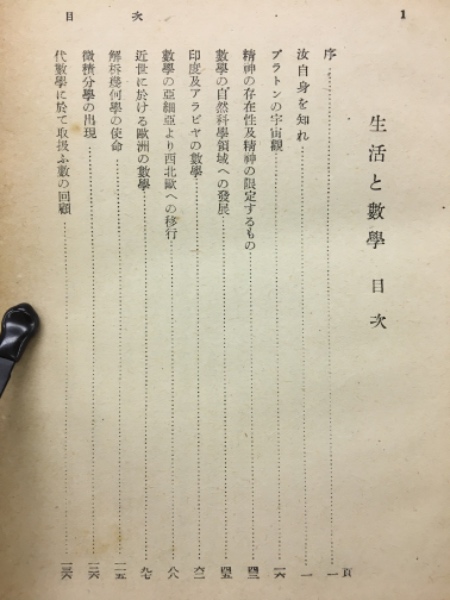 目次
1
生活と數學 目次
頁
序……一
汝自身を知れ……一
プラトンの宇宙觀……一六
精神の存在性及精神の限定するもの……四三
數學の自然科學領域への發展……四五
印度及アラビヤの數學……六二
數學の亞細亞より西北歐への移行……八八
近世に於ける歐洲の數學……九七
解析幾何學の使命……一一五
微積分學の出現……一二六
代數學に於て取扱ふ數の回顧……一三六